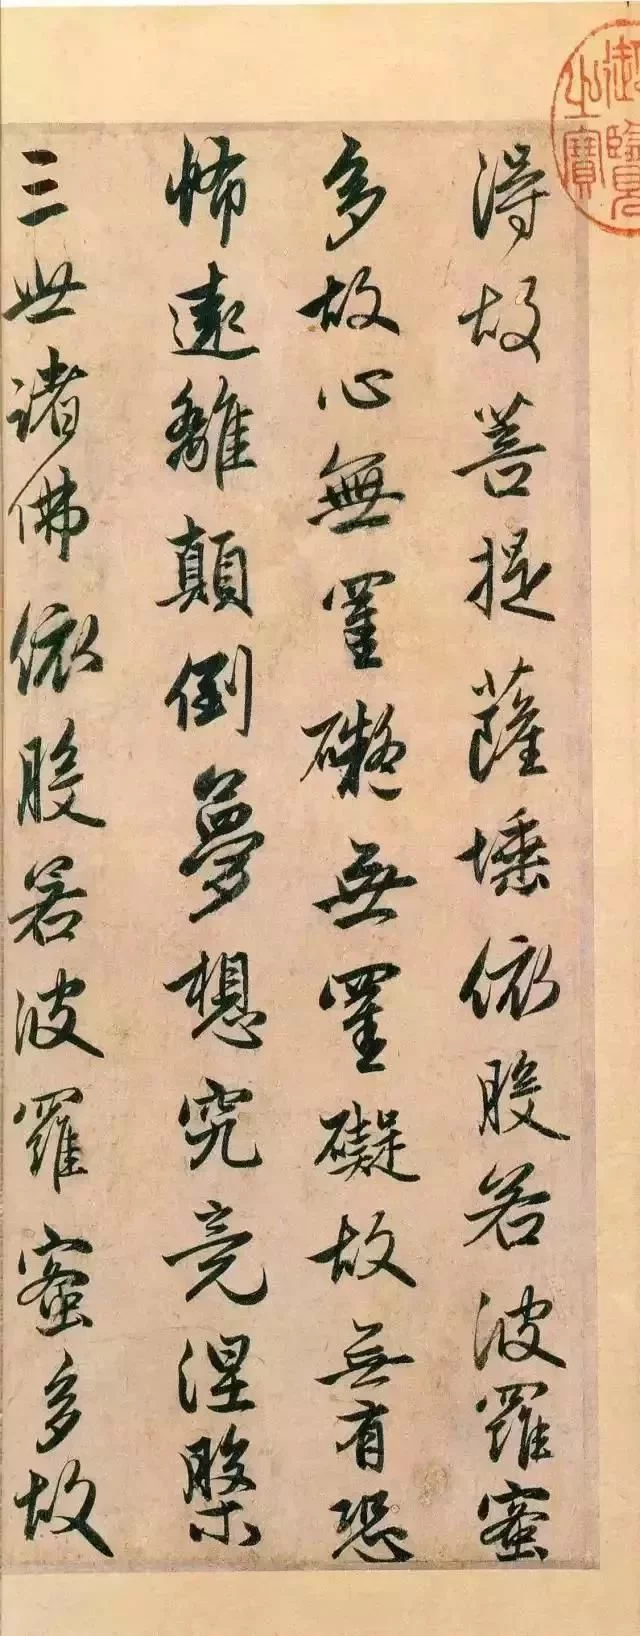 得故菩提薩埵依般若波羅蜜
多故心無罣礙無罣礙故無有恐
怖遠離顛倒夢想究竟涅槃
三世諸佛依般若波羅蜜多故
御覽之寶